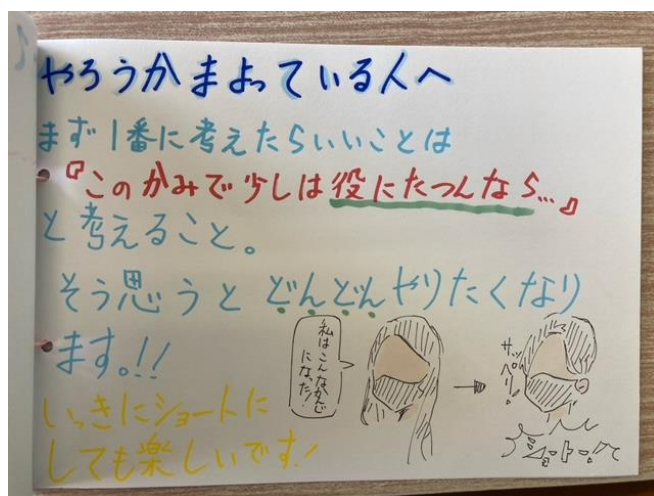 やろうかまよっている人へ
まず1番に考えたらいいことは
『このかみで少しは役にたつんなら…』
と考えること。
そう思うとどんどんやりたくなり
ます。!!
いっきにショートに
しても楽しいです!
私はこんなかんじ
になった!